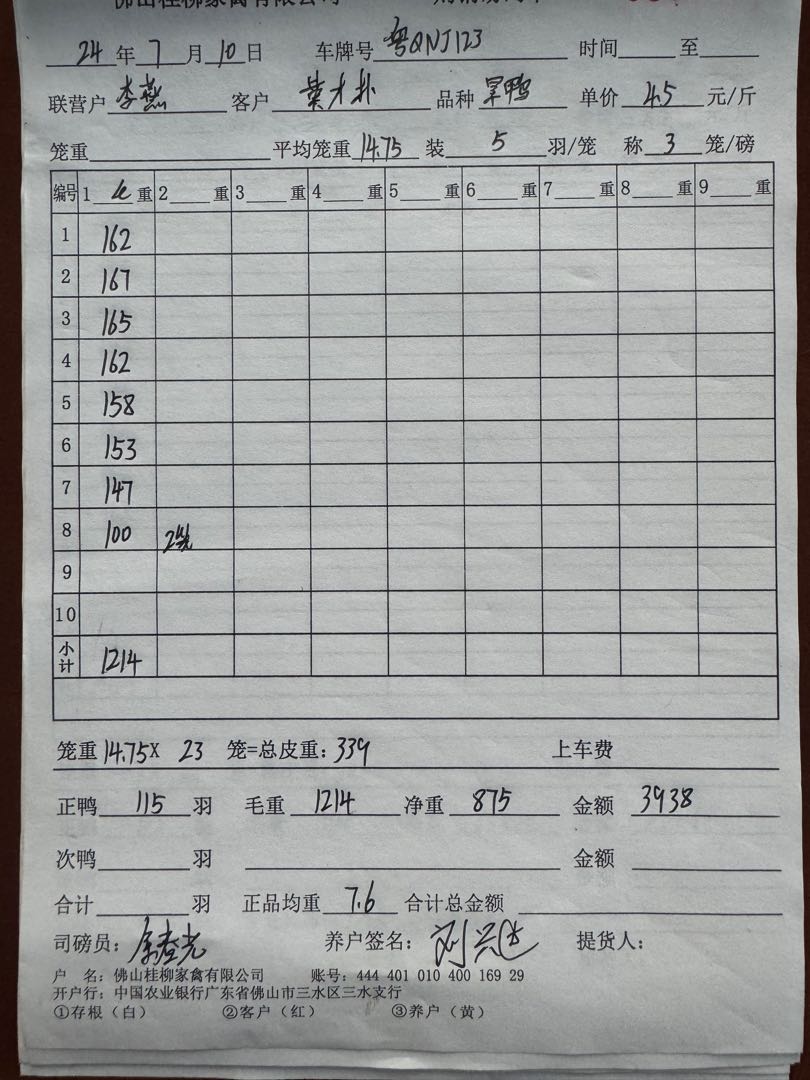 佛山桂柳家禽有限公司
24 年 7 月 10 日 车牌号 粤QNJ123 时间 至
联营户 李燕 客户 黄才朴 品种 旱鸭 单价 4.5 元/斤
笼重 平均笼重 14.75 装 5 羽/笼 称 3 笼/磅
编号 1 重 2 重 3 重 4 重 5 重 6 重 7 重 8 重 9 重
1 162
2 167
3 165
4 162
5 158
6 153
7 147
8 100 2笼
9
10
小计 1214
笼重 14.75 X 23 笼=总皮重: 339 上车费
正鸭 115 羽 毛重 1214 净重 875 金额 3938
次鸭 羽 金额
合计 羽 正品均重 7.6 合计总金额
司磅员: 养户签名: 提货人:
户 名: 佛山桂柳家禽有限公司 账号: 444 401 010 400 169 29
开户行: 中国农业银行广东省佛山市三水区三水支行
①存根（白） ②客户（红） ③养户（黄）